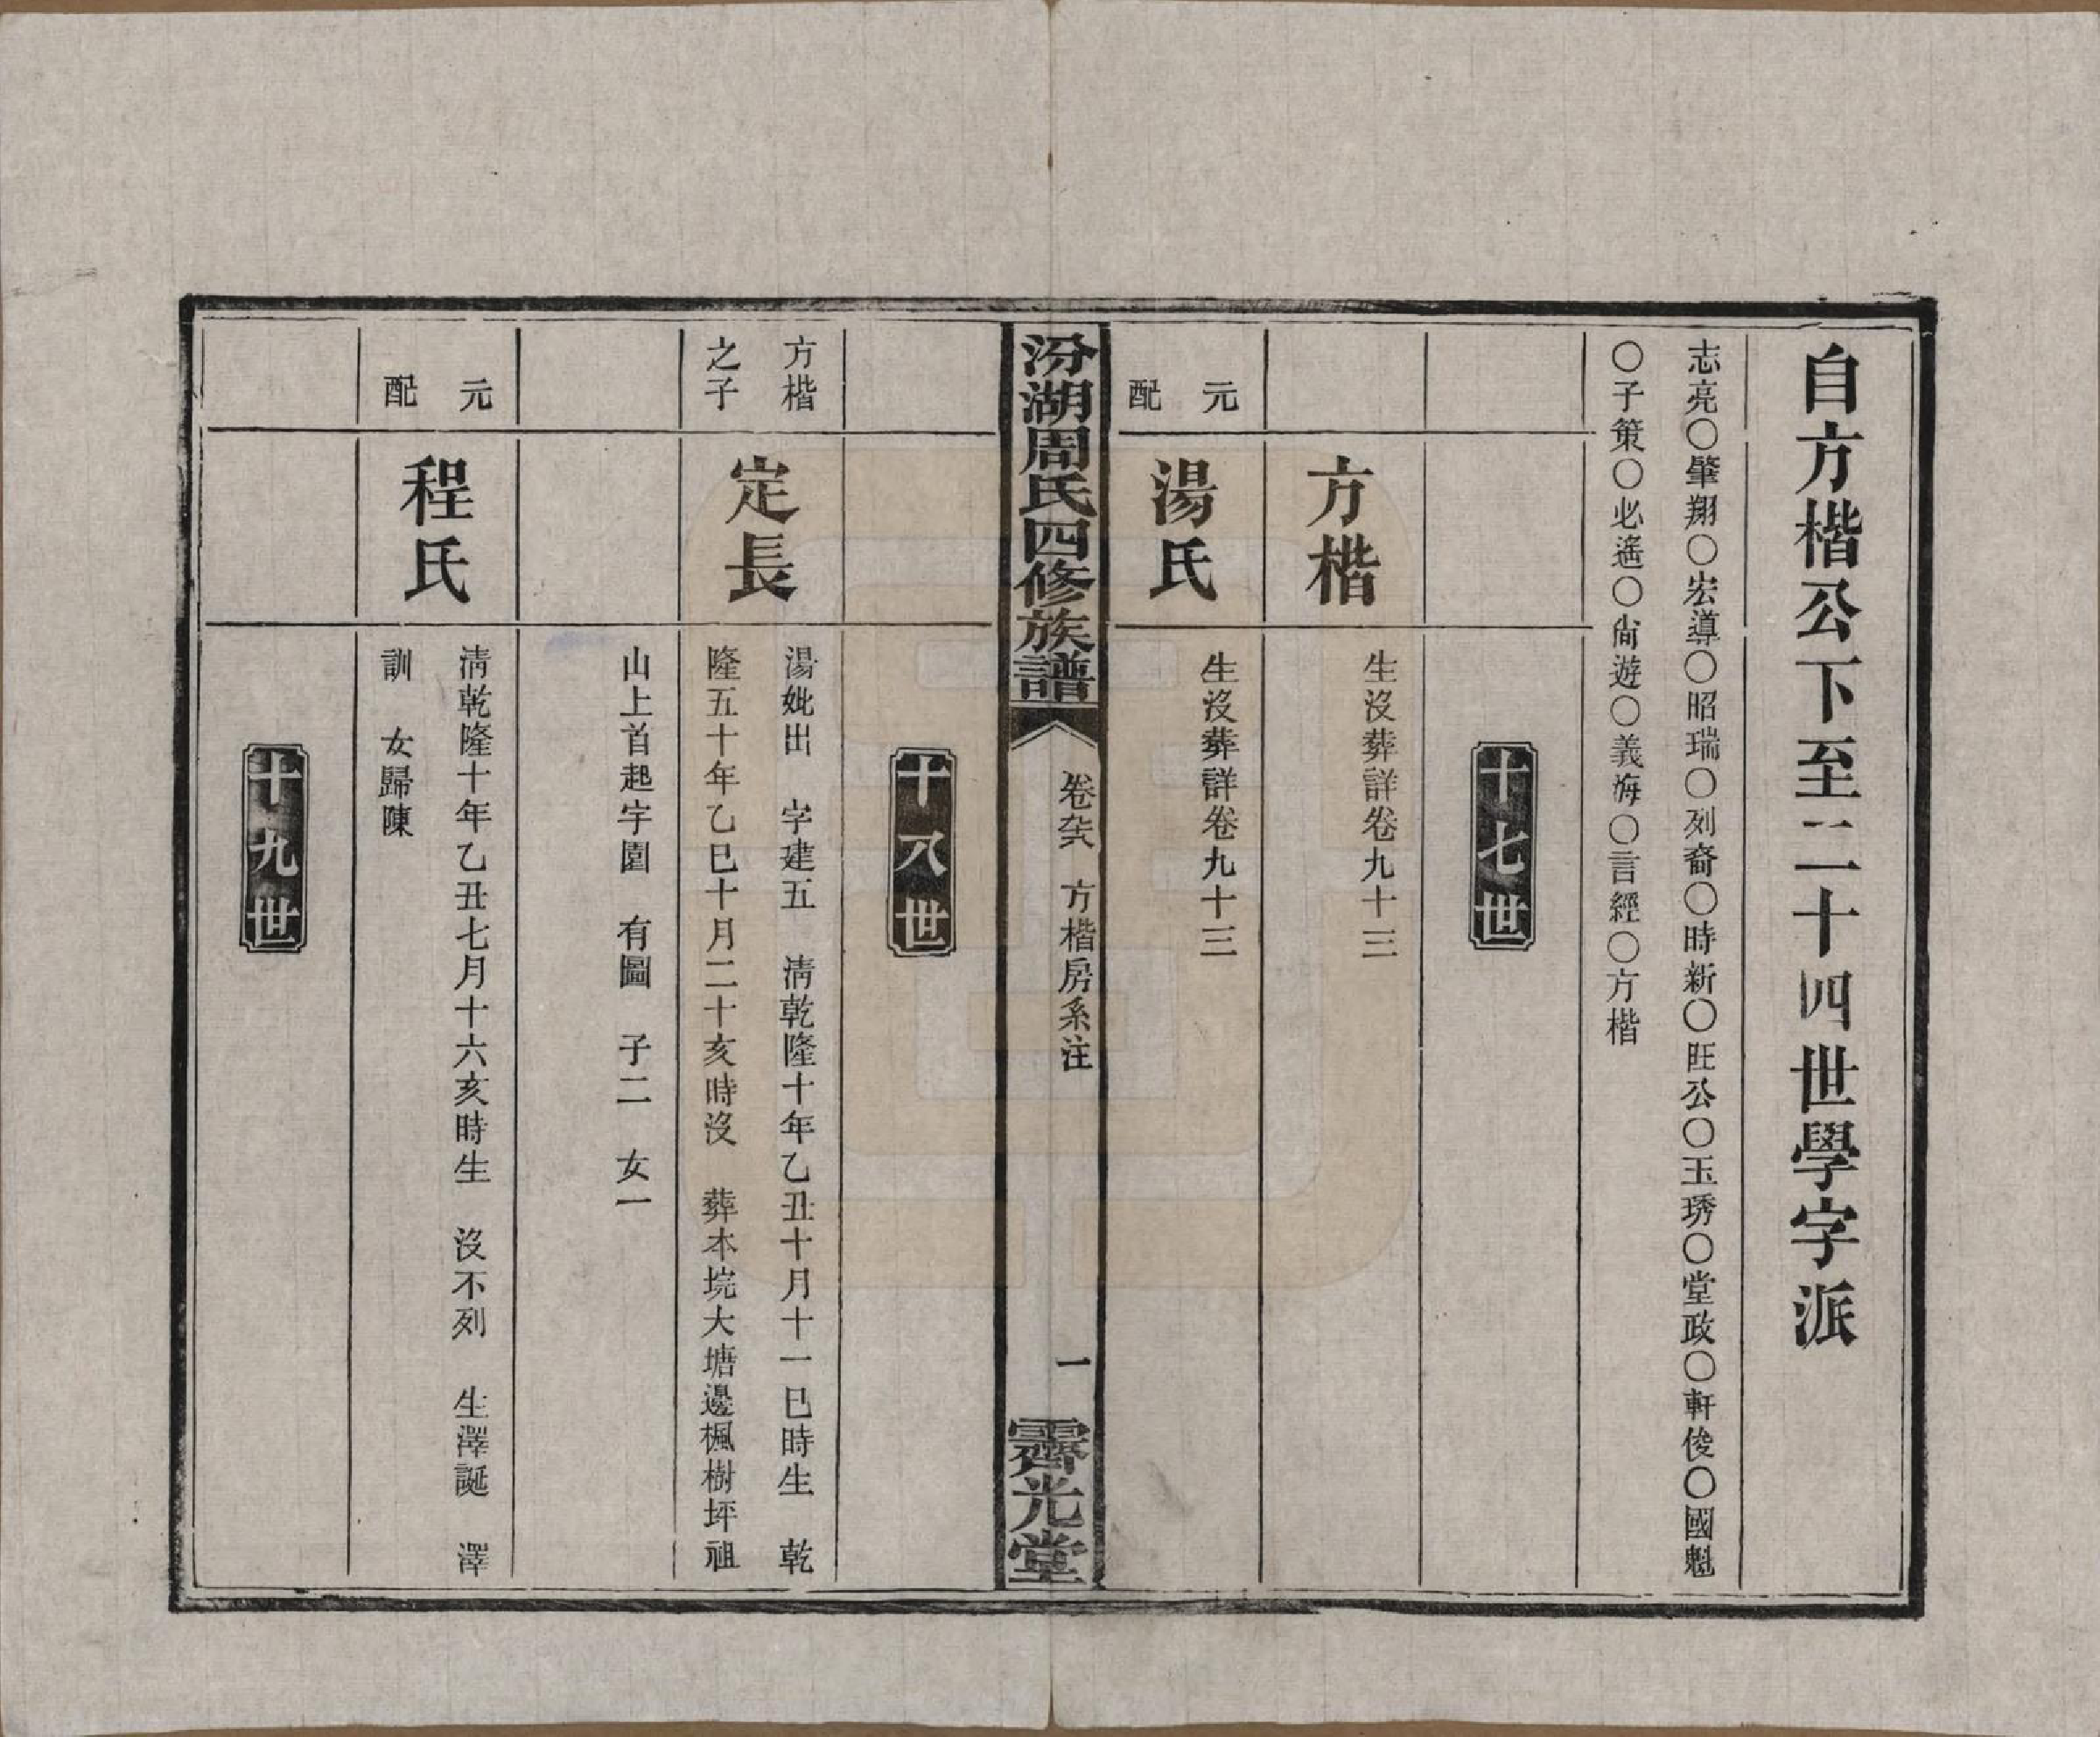 自方楷公下至二十四世學字派
志亮〇肇翔〇宏導〇昭瑞〇列裔〇時新〇旺公〇玉琇〇堂政〇軒俊〇國魁
〇子策〇必遙〇尙遊〇義海〇言經〇方楷
十七世
方楷
生沒葬詳卷九十三
元配
湯氏
生沒葬詳卷九十三
汾湖周氏四修族譜
卷
方楷房系注
一
霽光堂
十八世
方楷之子
定長
湯妣出 字建五 淸乾隆十年乙丑十月十一巳時生 乾
隆五十年乙巳十月二十亥時沒 葬本垸大塘邊楓樹坪祖
山上首起字園 有圖 子二 女一
元配
程氏
淸乾隆十年乙丑七月十六亥時生 沒不列 生澤誕 澤
訓 女歸陳
十九世